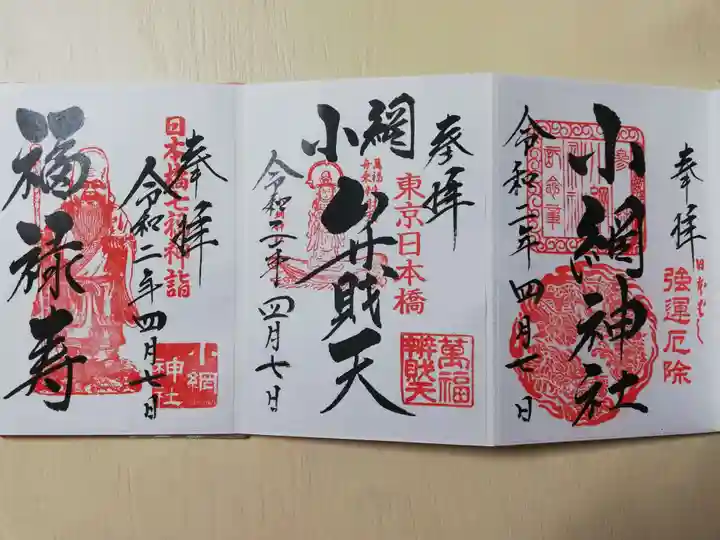 奉拝
日本ばし
強運厄除
小網神社
令和二年 四月七日
奉拝
東京日本橋
萬福
辨財天
小網
弁財天
令和二年 四月七日
奉拝
日本橋七福神詣
令和二年 四月七日
小網
神社
福禄寿